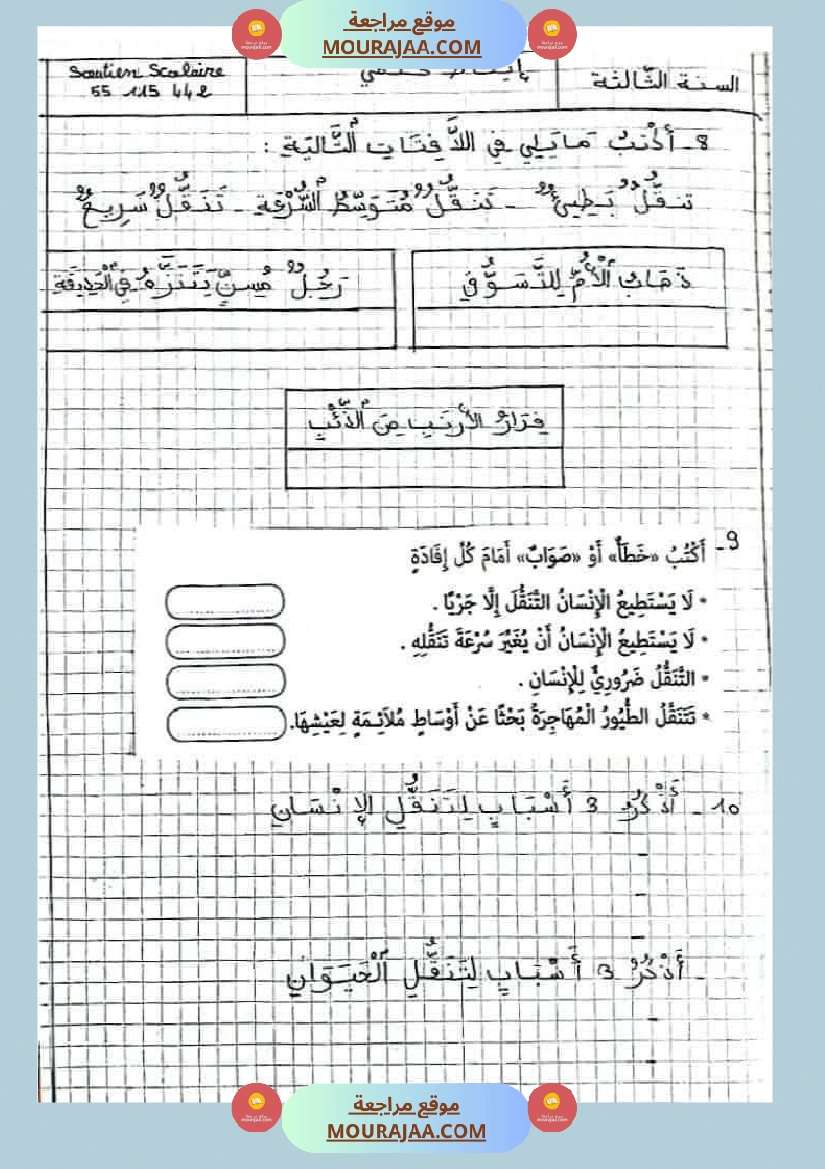 موقع مراجعة
MOURAJAA.COM
السنة الثّالثة
Soutien Scolaire
55 115 442
8 - أكْتبُ مَا يَلِي فِي اللاَّفِتَاتِ الْتَّالِيَةِ :
تنقُّلٌ بَطِيءٌ - تَنَقُّلٌ مُتَوَسِّطُ السُّرْعَةِ - تَنَقُّلٌ سَرِيعٌ
ذَهَابُ الْأُمِّ لِلتَّسَوُّقِ
رَجُلٌ مُسِنٌّ يَتَنَزَّهُ فِي الْحَدِيقَةِ
فِرَارُ الأَرْنَبِ مِنَ الْذِّئْبِ
9 - أَكْتُبُ «خَطَأٌ» أَوْ «صَوَابٌ» أَمَامَ كُلِّ إِفَادَةٍ
• لَا يَسْتَطِيعُ الْإِنْسَانُ التَّنَقُّلَ إِلَّا جَرْيًا .
• لَا يَسْتَطِيعُ الْإِنْسَانُ أَنْ يُغَيِّرَ سُرْعَةَ تَنَقُّلِهِ .
• التَّنَقُّلُ ضَرُورِيٌّ لِلْإِنْسَانِ .
• تَتَنَقَّلُ الطُّيُورُ الْمُهَاجِرَةُ بَحْثًا عَنْ أَوْسَاطٍ مُلاَئِمَةٍ لِعَيْشِهَا.
10 - أَذْكُرُ 3 أَسْبَابٍ لِتَنَقُّلِ الإِنْسَانِ
-
-
-
- أَذْكُرُ 3 أَسْبَابٍ لِتَنَقُّلِ الْحَيَوَانِ
-
-
-
موقع مراجعة
MOURAJAA.COM